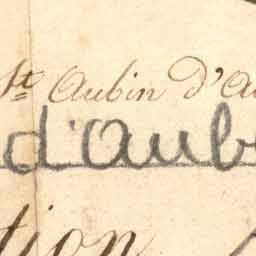 St Aubin d'Au
d'Aub
tion